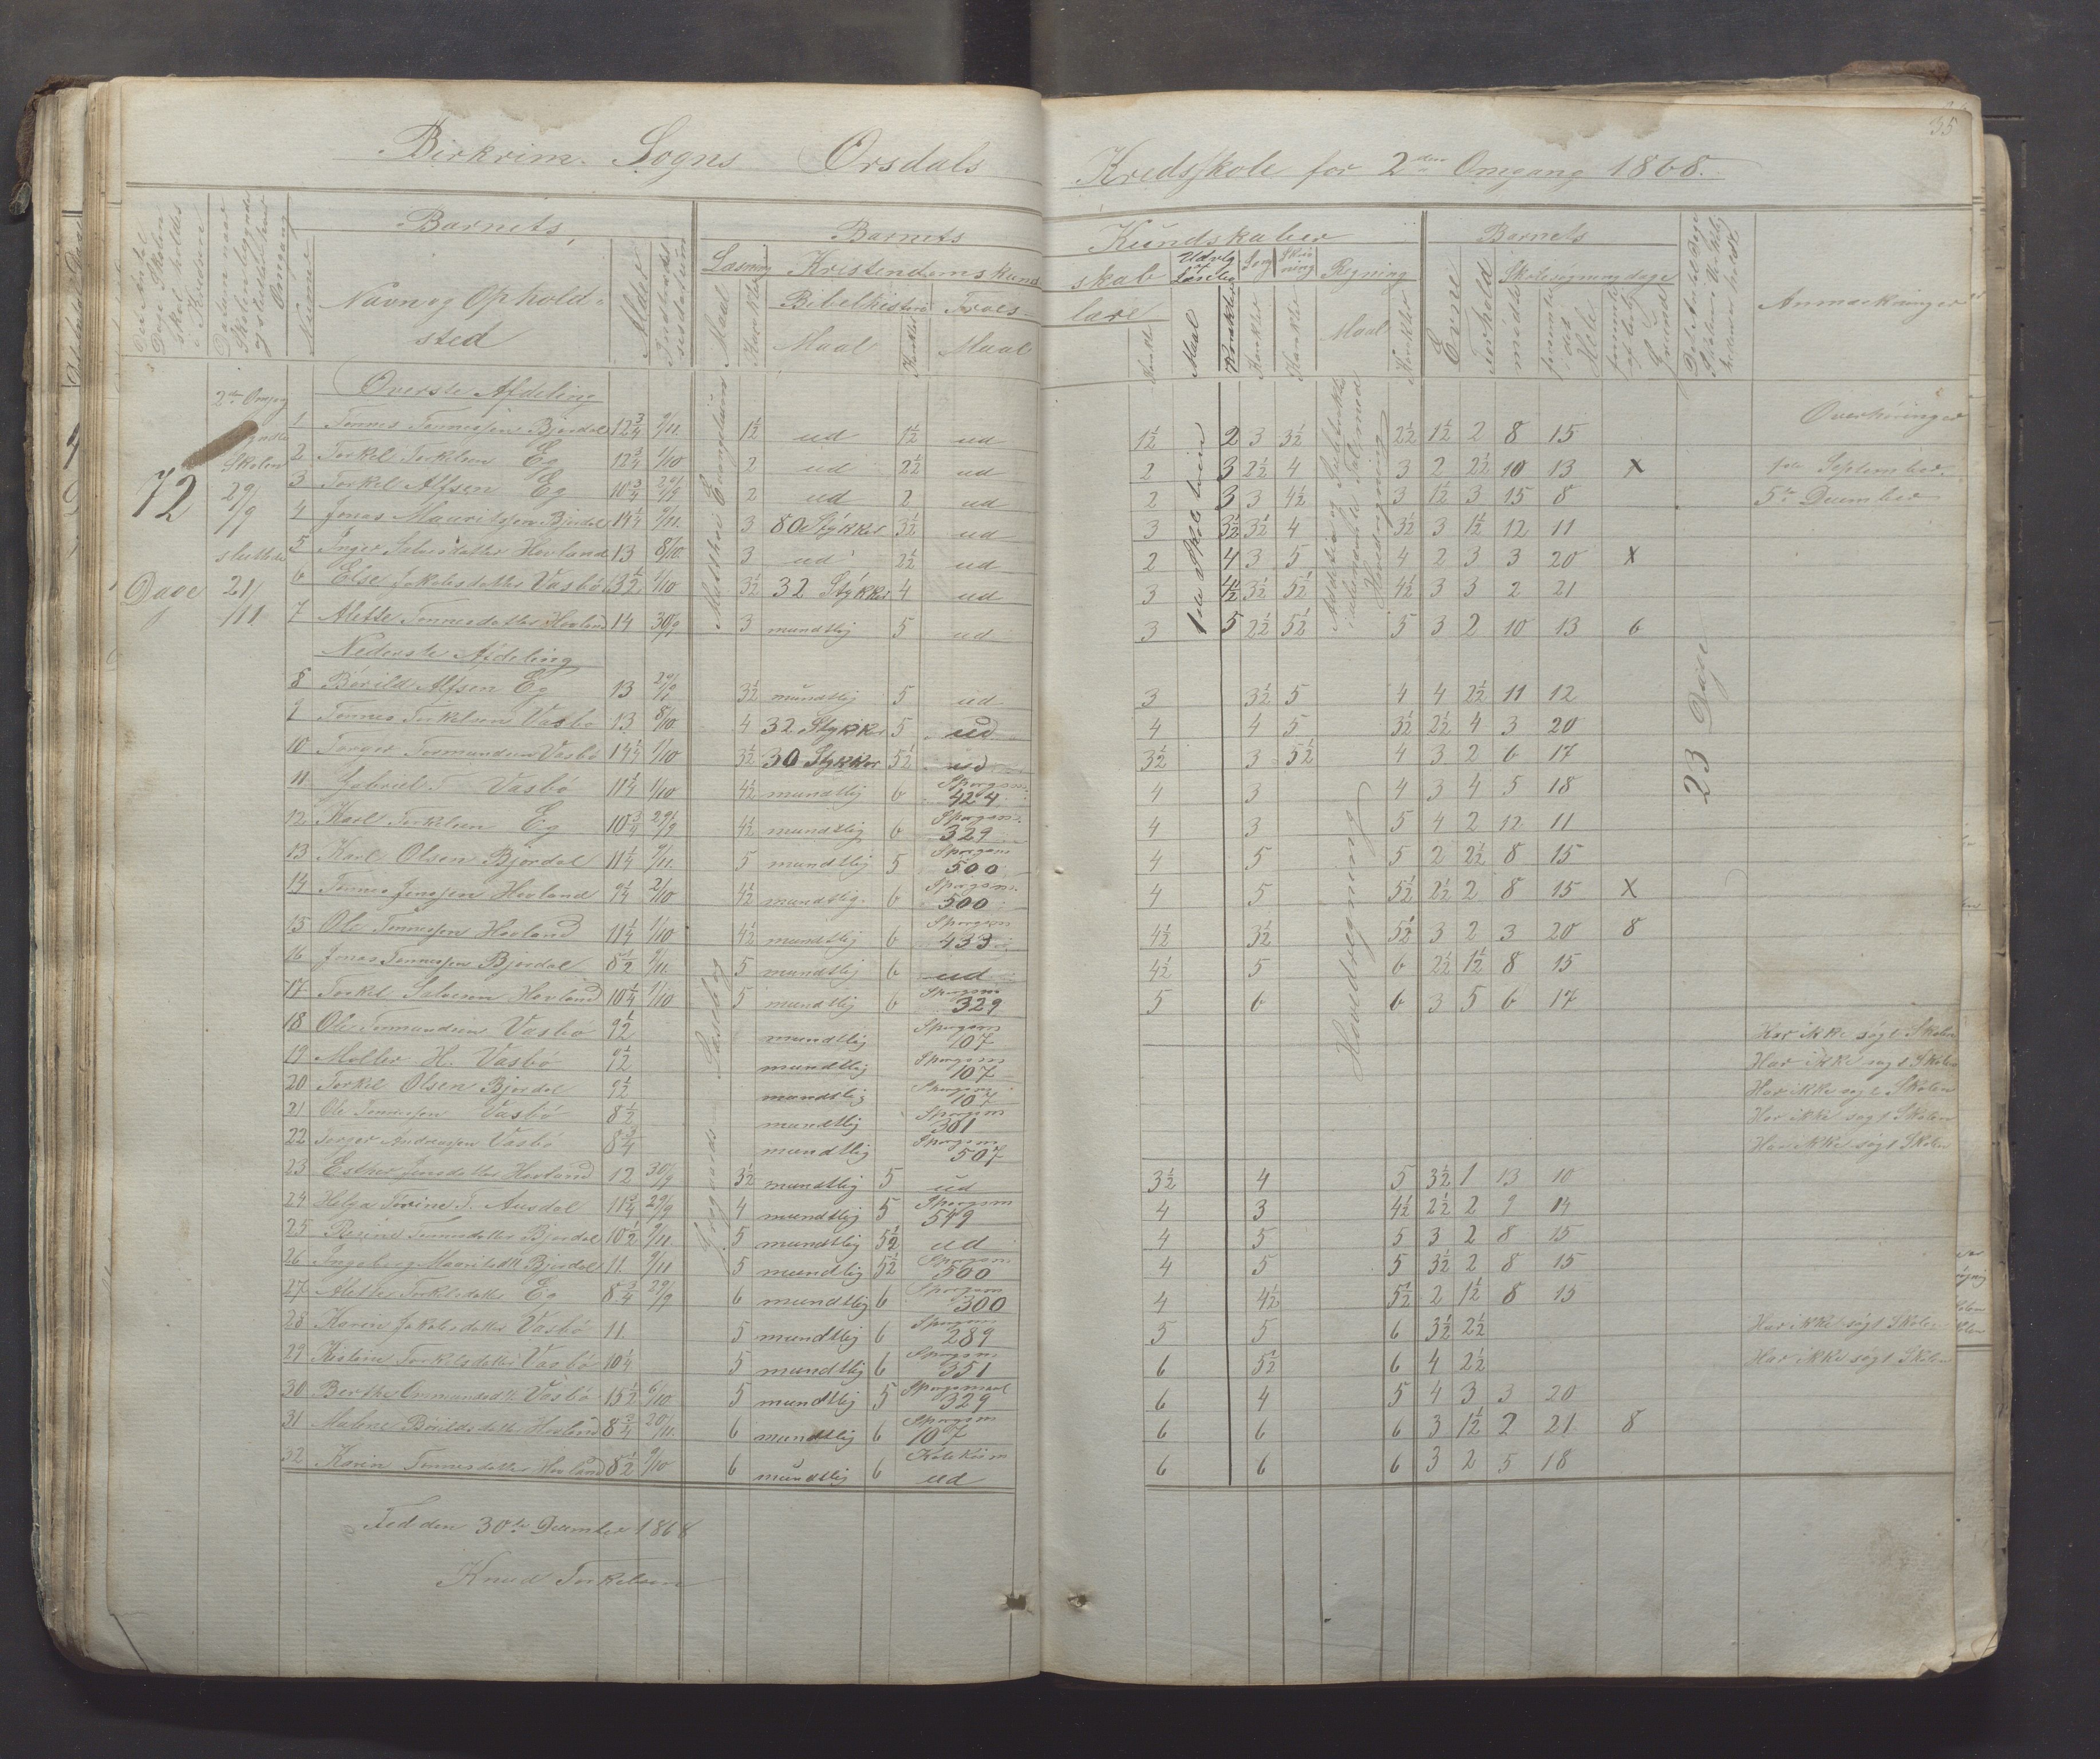 35
Birkrim Sogns Orsdals Kredsskole for 2den Omgang 1868.
Det Antal Dage Skolen skal holdes i Kredsen
Datum naar Skolen begyndes og sluttes hver Omgang
Numer
Barnets
Navn og Opholdssted
Alder
Indtrædelsesdatum
Barnets Kundskaber
Læsning
Maal
Karakter
Kristendomskundskab
Bibelhistorie
Maal
Karakter
Troeslære
Maal
Karakt
Udvlg af Læsebog
Maal
Karakter
Sang
Karakter
Skrivning
Karakter
Regning
Maal
Karakter
Barnets
Evne
Forhold
Skolesøgningsdage
mødte
forsømte i det Hele
forsømte af lovlig Grund
Det Antal Dage Skolen i Virkelighed holdt
Anmærkninger
72 Dage
2den Omgang
Skolen
29/9
sluttede
21/11
Matthæi Evangelium
1ste Skoletrin
Hovedregning
23 Dage
Overhøringer
1ste September
5te December
Øverste Afdeling
1 Tønnes Tønnessen Bjordal 12¾ 9/11 1½ ud 1½ ud 1½ 2 3 3½ 2½ 1½ 2 8 15
2 Torkel Torkelsen Eg 12¾ 1/10 2 ud 2½ ud 2 3 2½ 4 3 2 2½ 10 13 X
3 Torkel Alfsen Eg 10¾ 29/9 2 ud 2 ud 2 3 3 4½ 3 1½ 3 15 8
4 Jonas Mauritssen Bjordal 14¼ 9/11 3 80 Stykker 3½ ud 3 3½ 3½ 4 3½ 3 1½ 12 11
5 Inger Salvesdatter Hovland 13 8/10 3 ud 2½ ud 2 4 3 5 4 2 3 3 20 X
6 Else Jakobsdatter Vasbø 13½ 1/10 3½ 32 Stykker 4 ud 3 4½ 3½ 5½ 4½ 3 3 2 21
7 Alette Tønnesdatter Hovland 14 30/9 3 mundtlig 5 ud 3 5 2½ 5½ 5 3 2 10 13 6
Nederste Afdeling
Hovedregning
8 Børild Alfsen Eg 13 29/9 3½ mundtlig 5 ud 3 3½ 5 4 4 2½ 11 12
9 Tønnes Torkelsen Vasbø 13 8/10 4 32 Stykker 5 ud 4 4 5 3½ 2½ 4 3 20
10 Torger Tormundsen Vasbø 14¼ 1/10 3½ 30 Stykker 5½ ud 3½ 3 5½ 4 3 2 6 17
11 Gabriel T Vasbø 11¼ 1/10 4½ mundtlig 6 Spørgsm. 424 4 3 4 3 4 5 18
12 Karl Torkelsen Eg 10¾ 29/9 4½ mundtlig 6 Spørgsm. 329 4 3 5 4 2 12 11
13 Karl Olsen Bjordal 11¼ 9/11 5 mundtlig 5 Spørgsm 500 4 5 5 2 2½ 8 15
14 Tønnes Jenssen Hovland 9¼ 2/10 4½ mundtlig 6 Spørgsm. 500 4 5 5½ 2½ 2 8 15 X
15 Ole Tønnessen Hovland 11¼ 1/10 4½ mundtlig 6 Spørgsm 433 4½ 3½ 5½ 3 2 3 20 8
16 Jonas Tønnessen Bjordal 8½ 9/11 5 mundtlig 6 ud 4½ 5 6 2½ 1½ 8 15
17 Torkel Salvesen Hovland 10¼ 1/10 5 mundtlig 6 Spørgsm 329 5 6 6 3 5 6 17
18 Ole Tormundsen Vasbø 9½ mundtlig Spørgsm 107 Har ikke søgt Skolen
19 Møller H. Vasbø 9½ mundtlig Spørgsm 107 Har ikke søgt Skolen
20 Torkel Olsen Bjordal 9½ mundtlig Spørgsm 107 Har ikke søgt Skolen
21 Ole Tønnessen Vasbø 8½ mundtlig Spørgsm 301 Har ikke søgt Skolen
22 Torger Andreassen Vasbø 8¾ mundtlig Spørgsm 507 Har ikke søgt Skolen
23 Esther Jensdatter Hovland 12 30/9 3½ mundtlig 5 ud 3½ 4 5 3½ 1 13 10
24 Helga Torine T. Ausdal 11¾ 29/9 4 mundtlig 5 Spørgsm 549 4 3 4½ 2½ 2 9 14
25 Tønnesdatter Bjordal 10½ 9/11 5 mundtlig 5½ ud 4 5 5 3 2 8 15
26 Ingeborg Mauritsdtr Bjordal 11 9/11 5 mundtlig 5½ Spørgsm 500 4 5 5 3½ 2 8 15
27 Alette Torkelsdatter Eg 8¾ 29/9 6 mundtlig 6 Spørgsm 300 4 4½ 5½ 2 1½ 8 15
28 Karen Jakobsdatter Vasbø 11 5 mundtlig 6 Spørgsm 289 5 5 6 3½ 2½ Har ikke søgt Skolen
29 Kistine Torkelsdatter Vasbø 10¼ 5 mundtlig 6 Spørgsm 351 6 5½ 6 4 2½ Har ikke søgt Skolen
30 Berthe Ommundsdtr Vasbø 15½ 6/10 5 mundtlig 5 Spørgsmaal 329 6 4 5 4 3 3 20
31 Malene Børildsdatter Hovland 8¾ 20/11 6 mundtlig 6 Spørgsm 107 6 6 6 3 1½ 2 21 8
32 Karen Tønnesdatter Hovland 8½ 9/10 6 mundtlig 6 Katekism ud 6 6 6 3 2 5 18
Fed den 30te December 1868
Knud Torkelsen